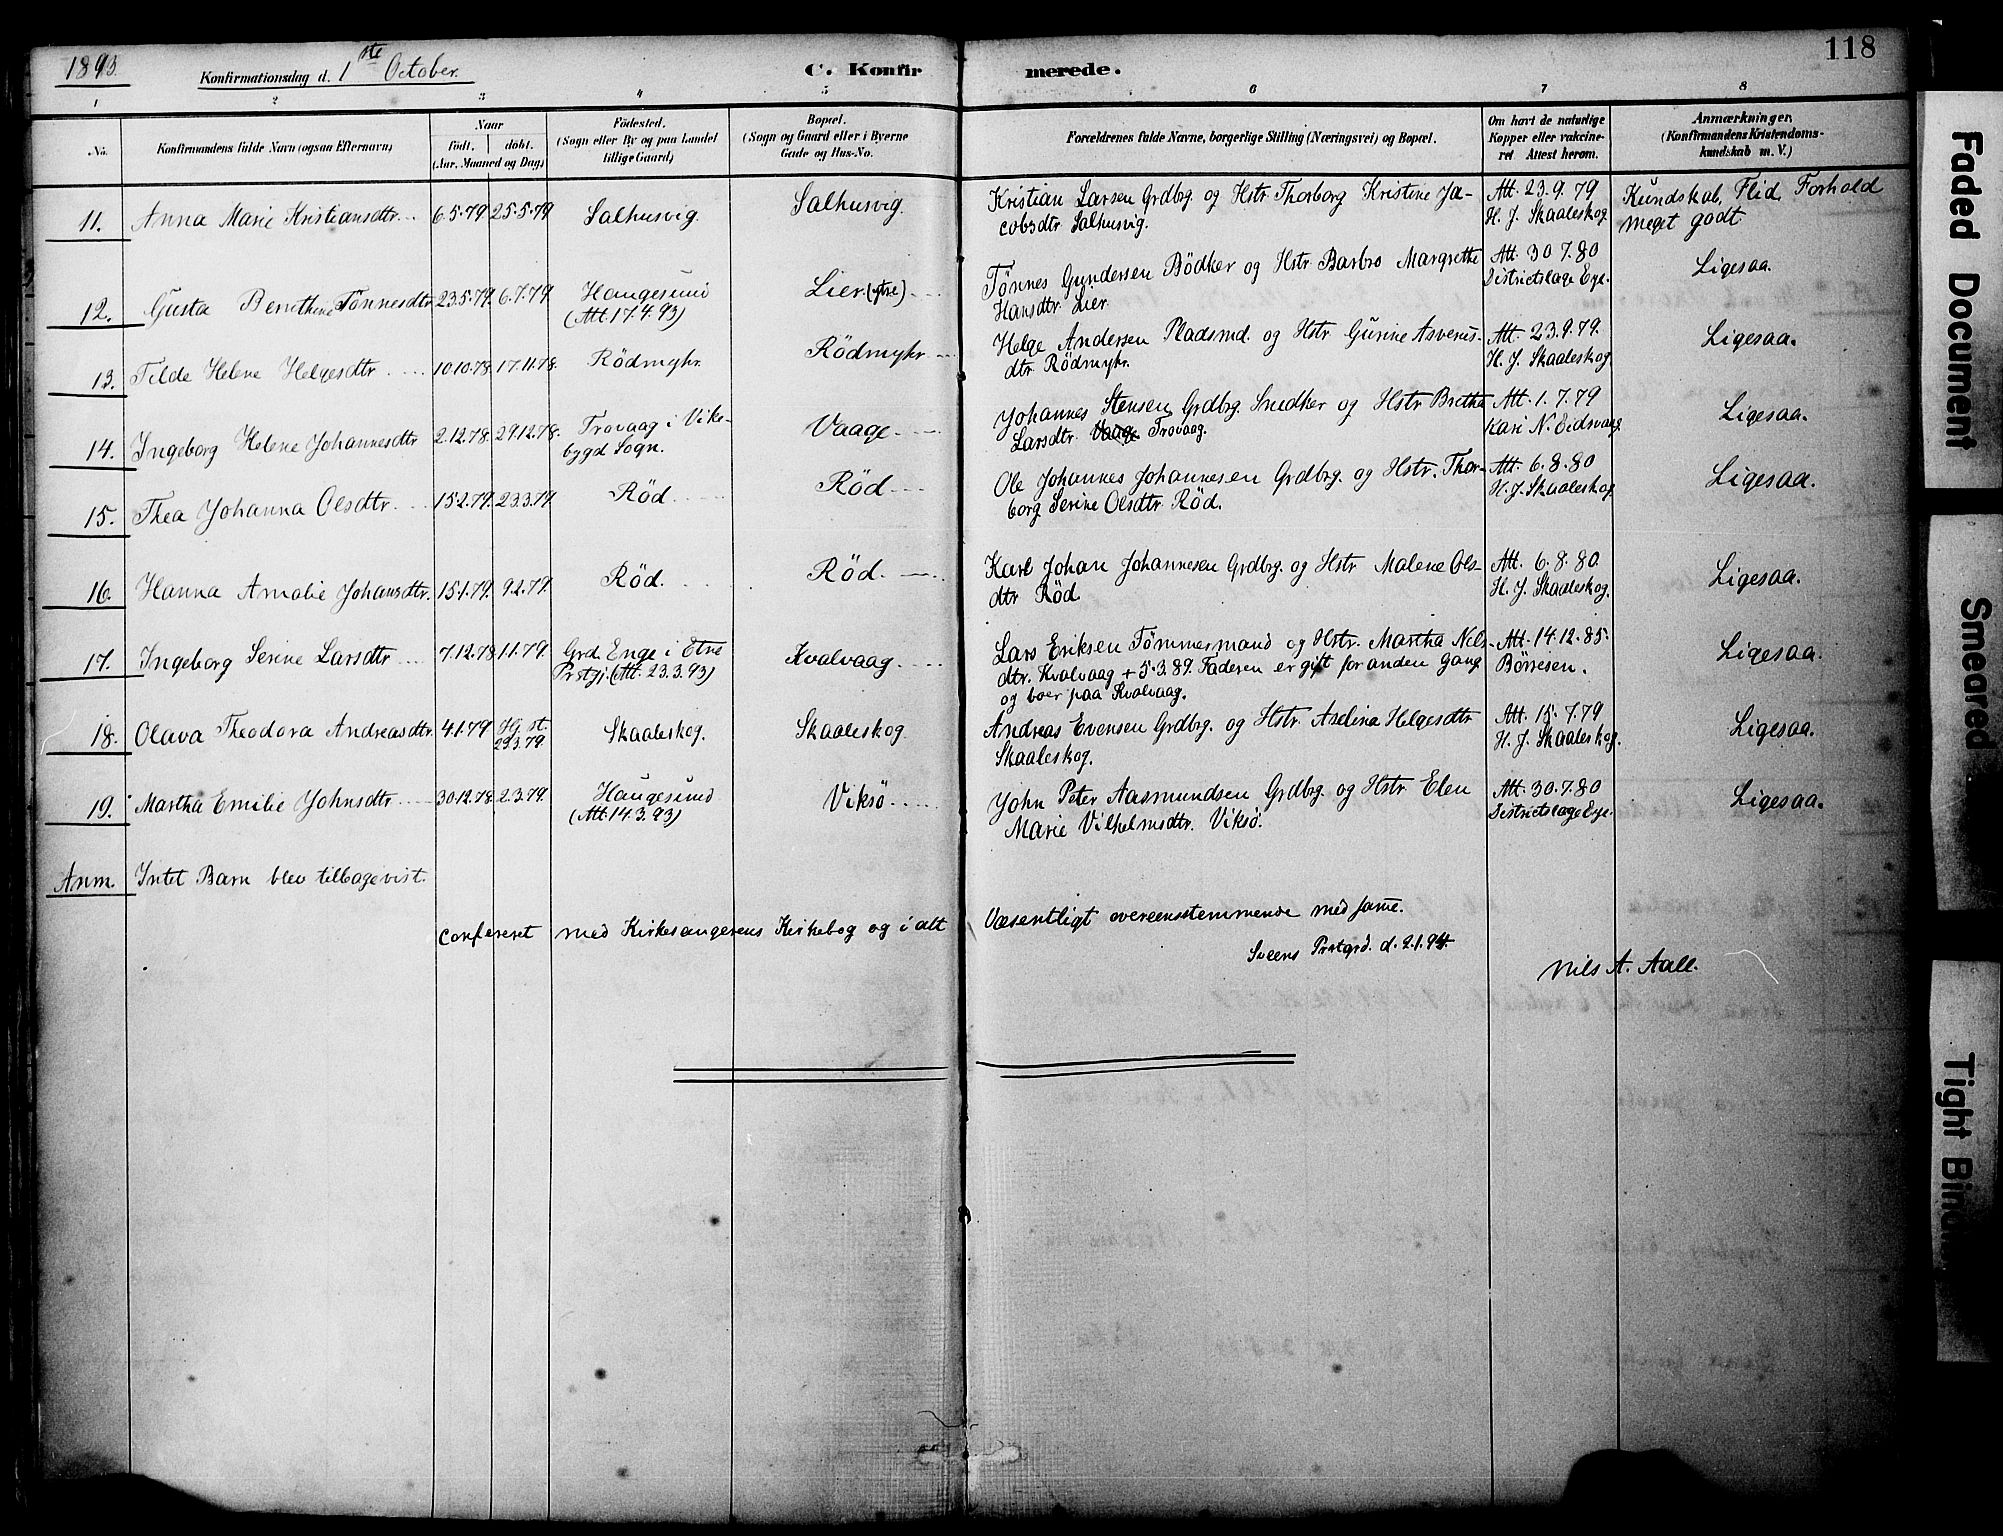 1893.
Konfirmationsdag d. 1ste October.
C. Konfirmerede.
118
1 2 3 4 5 6 7 8
No.
Konfirmandens fulde Navn (ogsaa Efternavn)
Naar
født. døbt.
(Aar, Maaned og Dag)
Fødested.
(Sogn eller By og paa Landet
tillige Gaard)
Bopæl.
(Sogn og Gaard eller i Byerne
Gade og Hus-No.
Forældrenes fulde Navne, borgerlige Stilling (Næringsvei) og Bopæl.
Om havt de naturlige
Kopper eller vakcine-
ret Attest herom.
Anmærkninger.
(Konfirmandens Kristendoms-
kundskab m. V.)
11. Anna Marie Kristiansdtr. 6.5.79 25.5.79 Salhusvig. Salhusvig. Kristian Larsen Grdbrg. og Hstr Thorborg Kristine Ja- Att. 23.9.79 Kundskab, Flid, Forhold
cobsdtr Salhusvig. H. J. Skaaleskog. meget godt.
12. Gusta Bernthine Tønnesdtr 23.5.79 6.7.79 Haugesund Lier (ytre) Tønnes Gundersen Bødker og Hstr Barbro Margrethe Att. 30.7.80 Ligesaa.
(Att. 17.4.93) Hansdtr Lier. Districtslæge Eye.
13. Tilde Helene Helgesdtr 10.10.78 17.11.78. Rödmyhr. Rödmyhr Helge Andersen Pladsmd. og Hstr Gurine Asverus- Att. 23.9.79. Ligesaa.
dtr Rödmyhr. H. J. Skaaleskog.
14. Ingeborg Helene Johannesdtr 2.12.78. 29.12.78. Trovaag i Vike- Vaage Johannes Stensen Grdbrg. Snedker og Hstr Bretha Att. 1.7.79 Ligesaa.
bygd Sogn. Larsdtr. Vaage Trovaag. Kari N. Eidsvaag.
15. Thea Johanna Olsdtr. 15.2.79. 23.3.79 Röd. Röd Ole Johannes Johannesen Grdbrg. og Hstr. Thor- Att. 6.8.80 Ligesaa.
borg Serine Olsdtr. Röd. H. J. Skaaleskog.
16. Hanna Amalie Johansdtr. 15.1.79. 9.2.79. Röd. Röd. Karl Johan Johannesen Grdbrg. og Hstr Malene Ols- Att. 6.8.80. Ligesaa.
dtr Röd. H. J. Skaaleskog.
17. Ingeborg Serine Larsdtr 7.12.78 1.1.79. Grd. Enge i Etne Kvalvaag. Lars Eriksen Tömmermand og Hstr. Martha Nils- Att. 14.12.85. Ligesaa.
Prstgj. (Att. 23.3.93) dtr. Kvalvaag + 5.3.89. Faderen er gift for anden Gang Börresen.
og boer paa Kvalvaag.
18. Olava Theodora Andreasdtr. 4.1.79 Hj. st. Skaaleskog. Skaaleskog Andreas Evensen Grdbrg. og Hstr. Aselina Helgesdtr Att. 15.7.79 Ligesaa.
23.3.79. Skaaleskog. H. J. Skaaleskog.
19. Martha Emilie Johnsdtr 30.12.78. 2.3.79. Haugesund Viksö John Peter Aasmundsen Grdbrg. og Hstr Elen Att. 30.7.80 Ligesaa.
(Att. 14.3.93) Marie Vilhelmsdtr. Viksö. Districtslæge Eye.
Anm. Intet Barn blev tilbagevist.
confereret med Kirkesangerens Kirkebog og i alt Væsentligt overeensstemmende med samme.
Sveens Prstgrd. d. 2.1.94.
Nils A. Aall.
Faded Document
Smeared
Tight